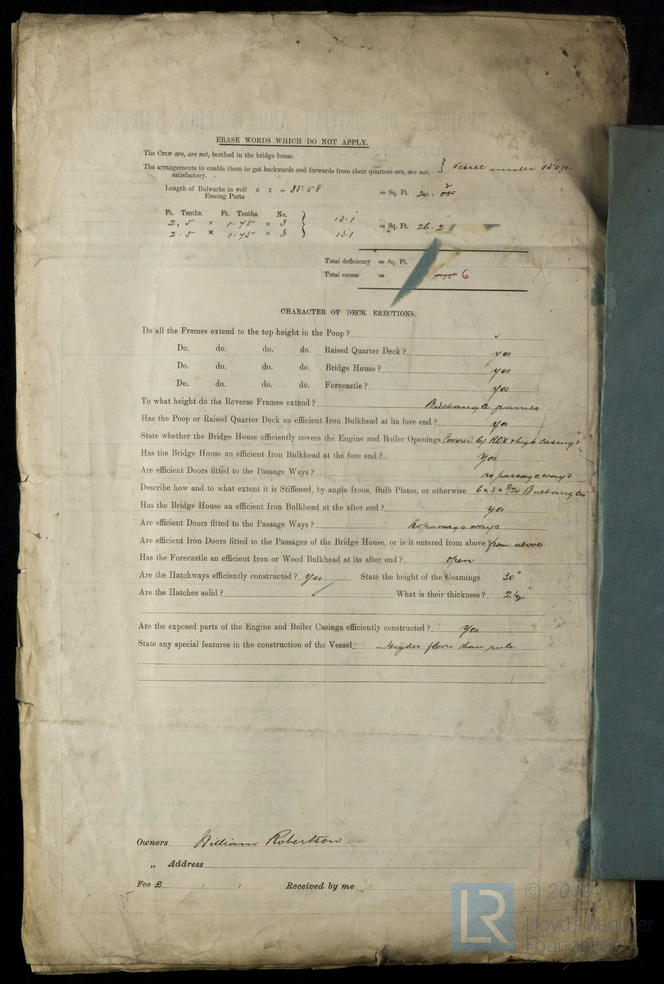 ERASE WORDS WHICH DO NOT APPLY.
The Crew are, are not, berthed in the bridge house.
The arrangements to enable them to get backwards and forwards from their quarters are, are not, satisfactory. } Vessel under 150 ft
Length of Bulwarks in well × 2 ÷ = Sq. Ft. 20.
Freeing Ports
Ft. Tenths. Ft. Tenths. No.
2.5 × 1.75 × 3 } 13.1
2.5 × 1.75 × 3 13.1 = Sq. Ft. 26.2
Total deficiency = Sq. Ft.
Total excess = 6
CHARACTER OF DECK ERECTIONS.
Do all the Frames extend to the top height in the Poop? "
Do. do. do. do. Raised Quarter Deck? yes
Do. do. do. do. Bridge House? yes
Do. do. do. do. Forecastle? yes
To what height do the Reverse Frames extend? Bulbangle frames
Has the Poop or Raised Quarter Deck an efficient Iron Bulkhead at its fore end? yes
State whether the Bridge House efficiently covers the Engine and Boiler Openings Covered by RQD & high casings
Has the Bridge House an efficient Iron Bulkhead at the fore end? Yes
Are efficient Doors fitted to the Passage Ways? no passageways
Describe how and to what extent it is Stiffened, by angle Irons, Bulb Plates, or otherwise 6 x 3 x 8/20 Bulbangles
Has the Bridge House an efficient Iron Bulkhead at the after end? yes
Are efficient Doors fitted to the Passage Ways? No passage ways
Are efficient Iron Doors fitted to the Passages of the Bridge House, or is it entered from above from above
Has the Forecastle an efficient Iron or Wood Bulkhead at its after end? open
Are the Hatchways efficiently constructed? Yes State the height of the Coamings 30"
Are the Hatches solid? What is their thickness? 2½
Are the exposed parts of the Engine and Boiler Casings efficiently constructed? Yes
State any special features in the construction of the Vessel Higher floors than rule
Owners William Robertson
" Address
Fee £ : : Received by me
LR
© 20
Lloyd's Register
Foundation